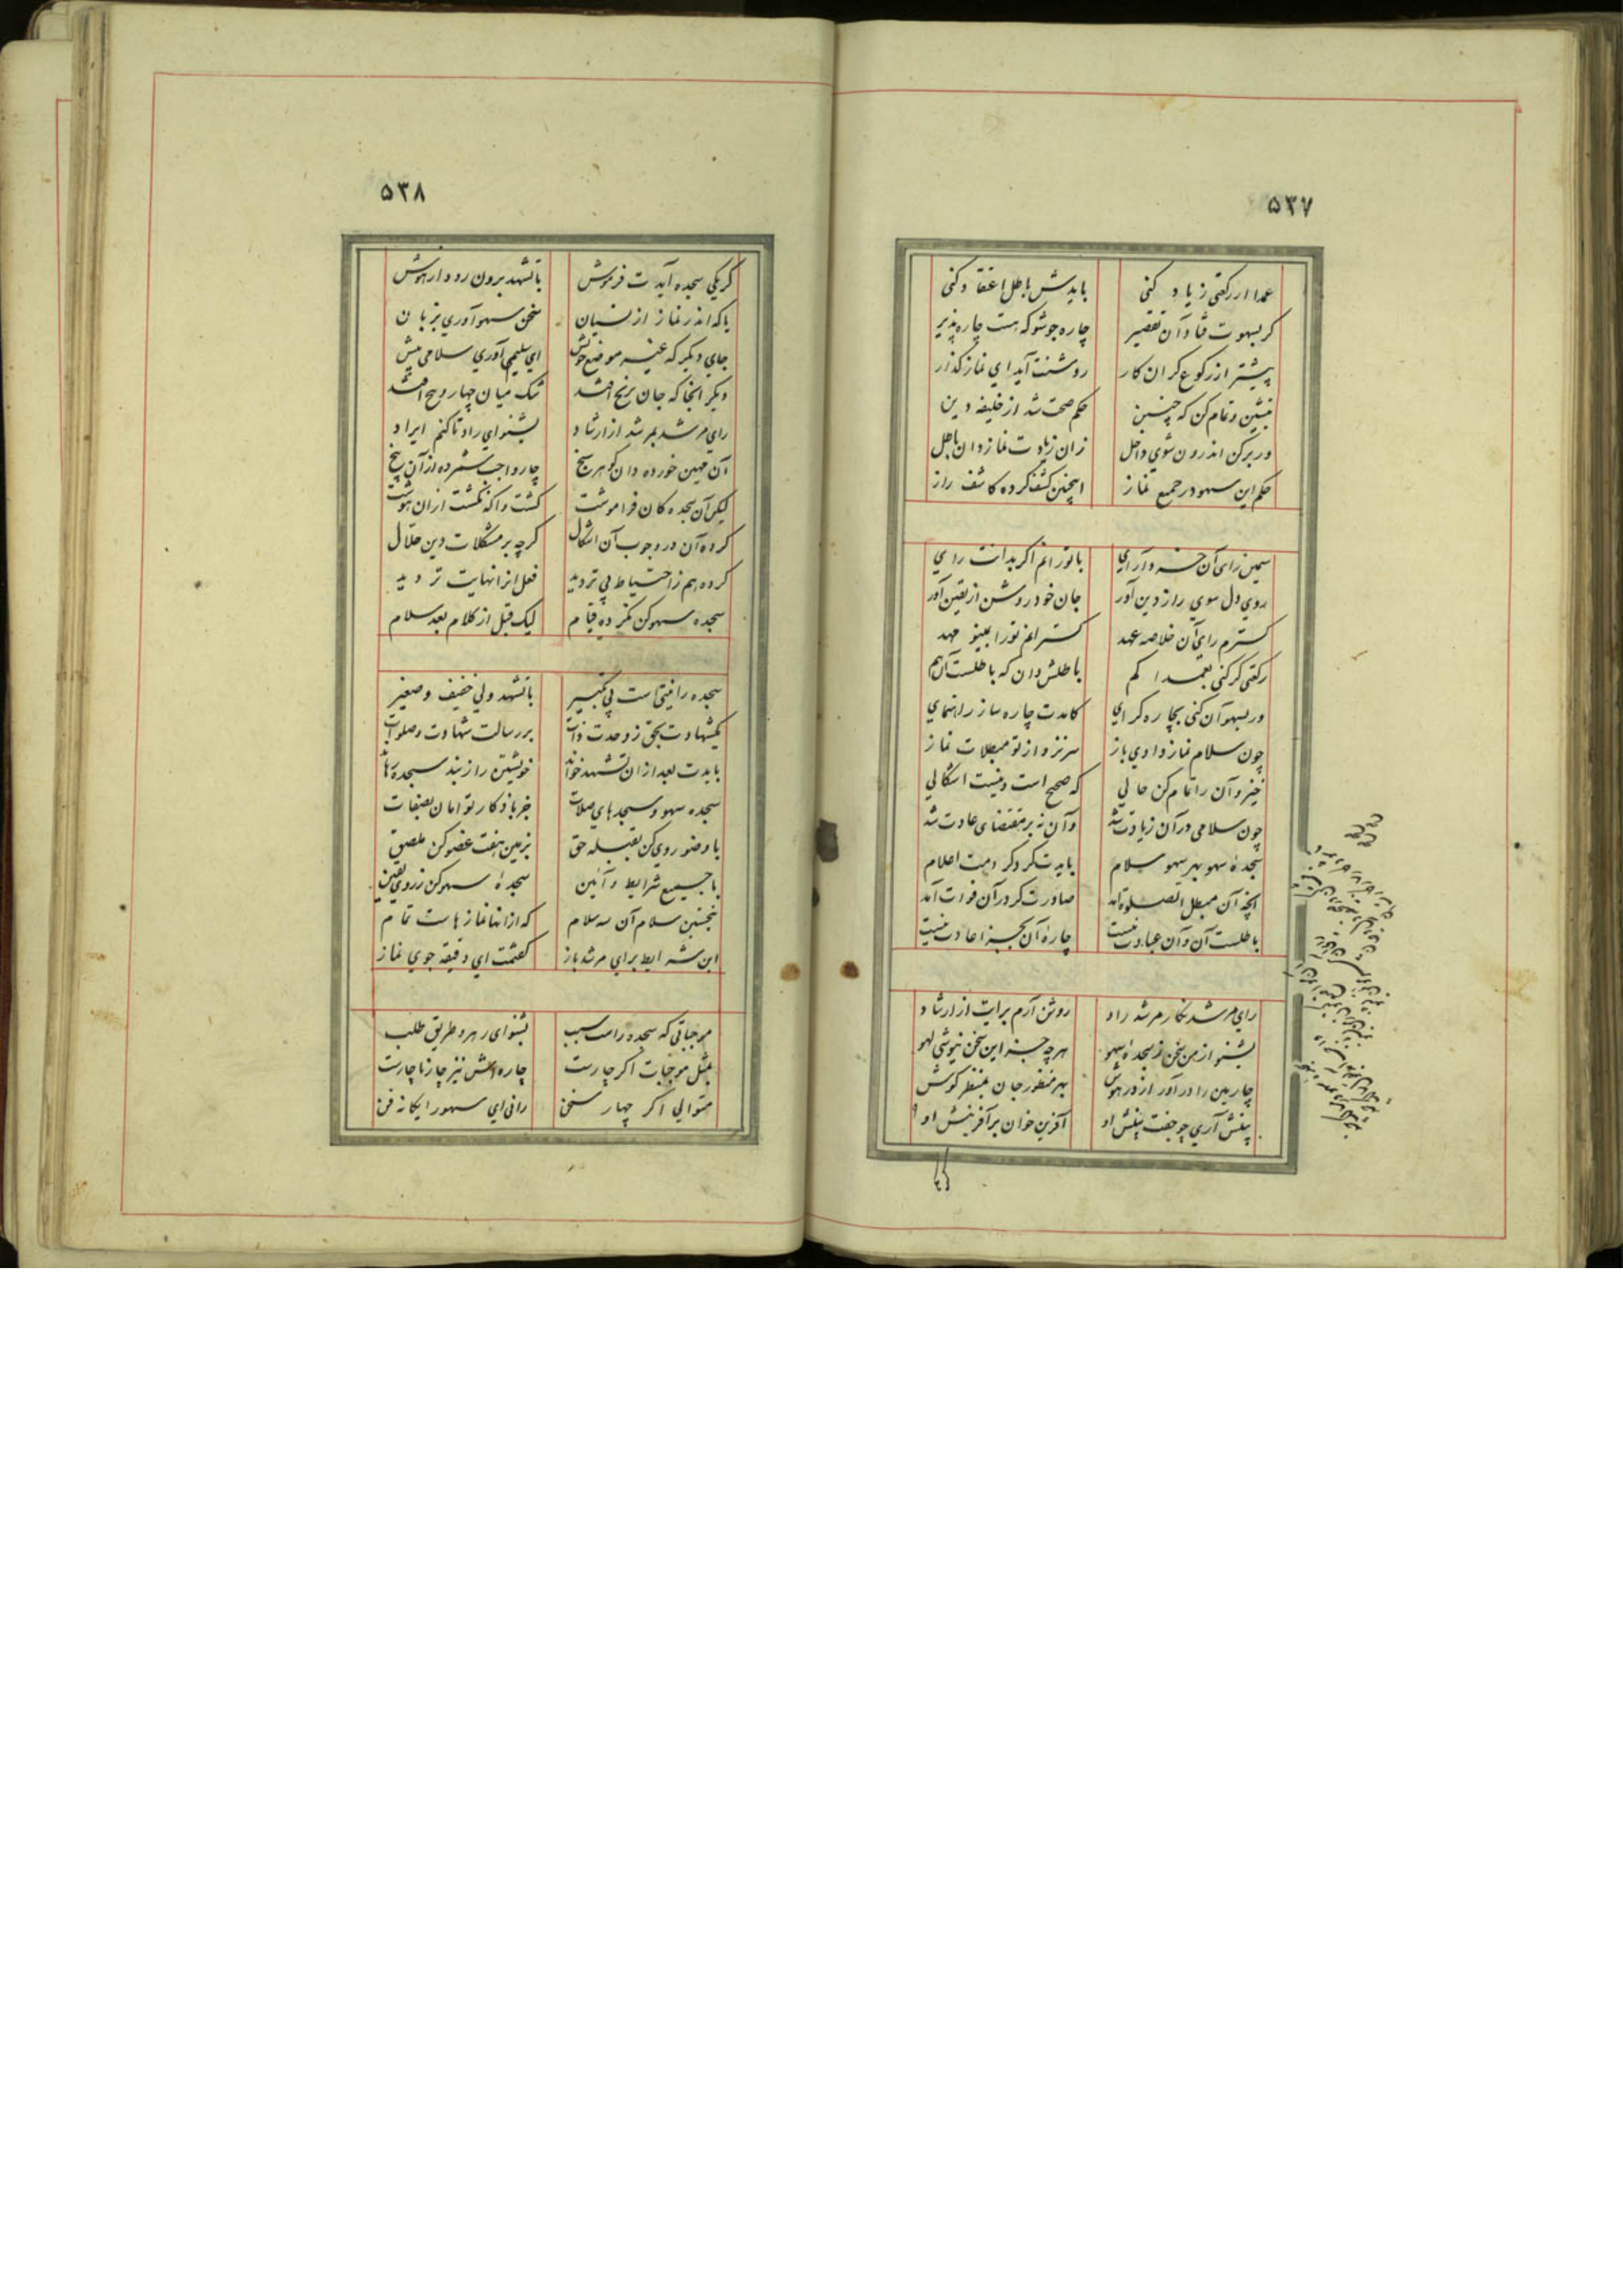 ۵۳۷
عمدا ار رکعتی زیاد کنی بایدش باطل اعتقاد کنی
کر بسهوت فتاد آن تقصیر چاره جو شو که هست چاره پذیر
پیشتر از رکوع کر ان کار روشنت آید ای نماز کذار
بنشین و تمام کن که چنین حکم صحت شد از خلیفه دین
ور برکن اندرون شوی داخل زان زیادت نماز دان باطل
حکم این سهو در جمیع نماز اینچنین کشف کرده کاشف راز
روی دل سوی راز دین آور جان خود روشن از یقین آور
کسترم رای آن خلاصه عهد
رکعتی کر کنی بعمدا کم باطلش دان که باطلست آن هم
ور بسهو آن کنی بچاره کرای کامدت چاره ساز راهنمای
چون سلام نماز دادی باز سرنزد از تو مبطلات نماز
خیز و آن را تمام کن حالی که صحیح است و نیست اشکالی
چون سلامی در آن زیادت شد وآن نه بر مقتضای عادت شد
سجدهٔ سهو بهر سهو سلام بایدت کرد
آنچه آن مبطل الصلوة آمد صادرت کر در آن فوات آمد
باطلست آن و آن عبادت نیست چارهٔ آن بجز اعادت نیست
رای مرشد نکار مرشد راد روشن آرم برایت از ارشاد
بشنو از من سخن ز سجدهٔ سهو هر چه جز این سخن نیوشی لهو
آفرین خوان بر آفرینش او
۵۳۸
کر یکی سجده آیدت فرموش یا تشهد برون رود از هوش
یا که اندر نماز از نسیان سخن سهو آوری بزبان
جای دیکر که غیر موضع خویش ای سلیم آوری سلامی پیش
دیکر آنجا که جان برنج افتد شک میان چهار و پنج افتد
رای مرشد بمرشد از ارشاد بشنو ای راد تا کنم ایراد
چار واجب شمرده از آن پنج
لیکن آن سجده کان فراموشت کشت و آکه نکشت از ان هوشت
کرده آن در وجوب آن اشکال کرچه بر مشکلات دین حلال
کرده هم ز احتیاط بی تردید فعل انرا نهایت تردید
سجده سهو کن نکرده قیام لیک قبل از کلام بعد سلام
سجده را نیتی است بی تکبیر با تشهد ولی خفیف و صغیر
یکشهادت بحق ز وحدت ذات بر رسالت شهادت و صلوات
بایدت بعد از ان تشهد خواند
سجده سهو و سجدهای صلات جز باذکار توامان بصفات
با وضو روی کن بقبله حق بزمین هفت عضو کن ملصق
با جمیع شرایط و آئین سجدهٔ سهو کن ز روی یقین
که از انها نمازهاست تمام
این شرایط برای مرشد باز کفتمت ای دقیقه جوی نماز
موجباتی که سجده راست سبب بشنو ای رهرو طریق طلب
مثل موجبات اکر چارست چاره اش نیز چار ناچارست
متوالی اکر چهار سخن رانی ای سهو را یکانه فن